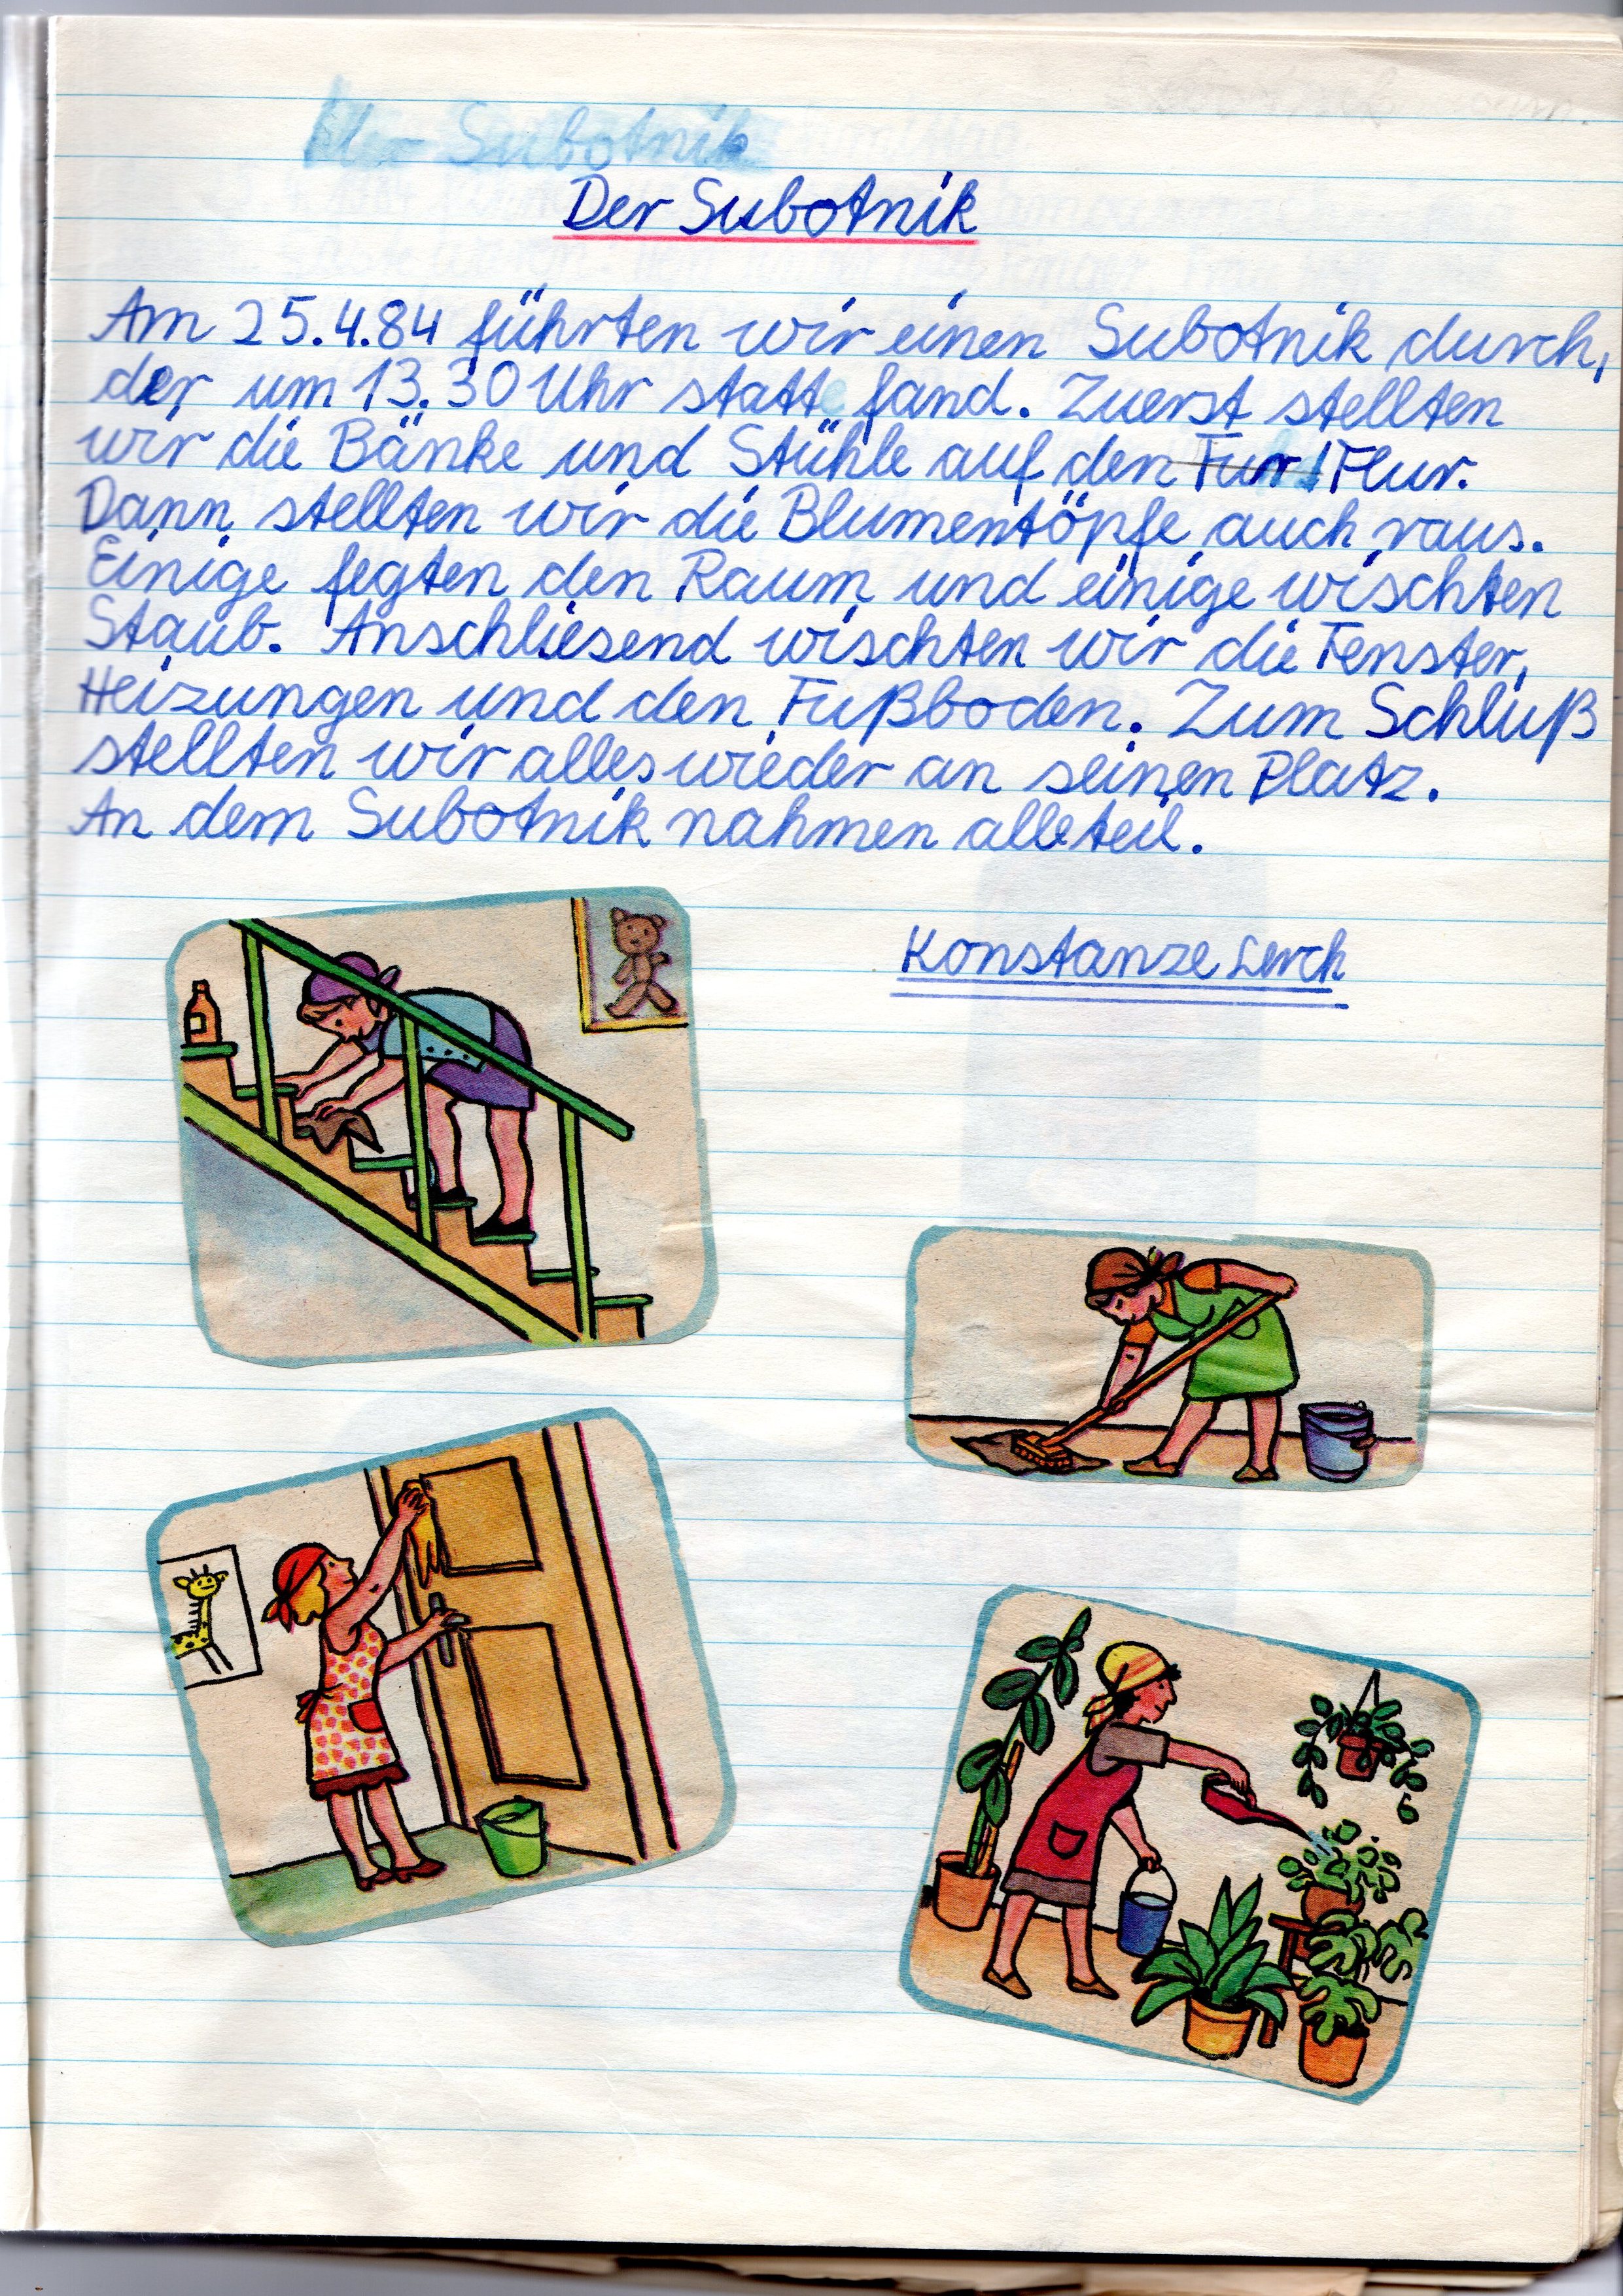 Subotnik
Der Subotnik
Am 25.4.84 führten wir einen Subotnik durch,
der um 13.30 Uhr statt fand. Zuerst stellten
wir die Bänke und Stühle auf den Fur Flur.
Dann stellten wir die Blumentöpfe auch raus.
Einige fegten den Raum und einige wischten
Staub. Anschliesend wischten wir die Fenster,
Heizungen und den Fußboden. Zum Schluß
stellten wir alles wieder an seinen Platz.
An dem Subotnik nahmen alle teil.
Konstanze Lerch